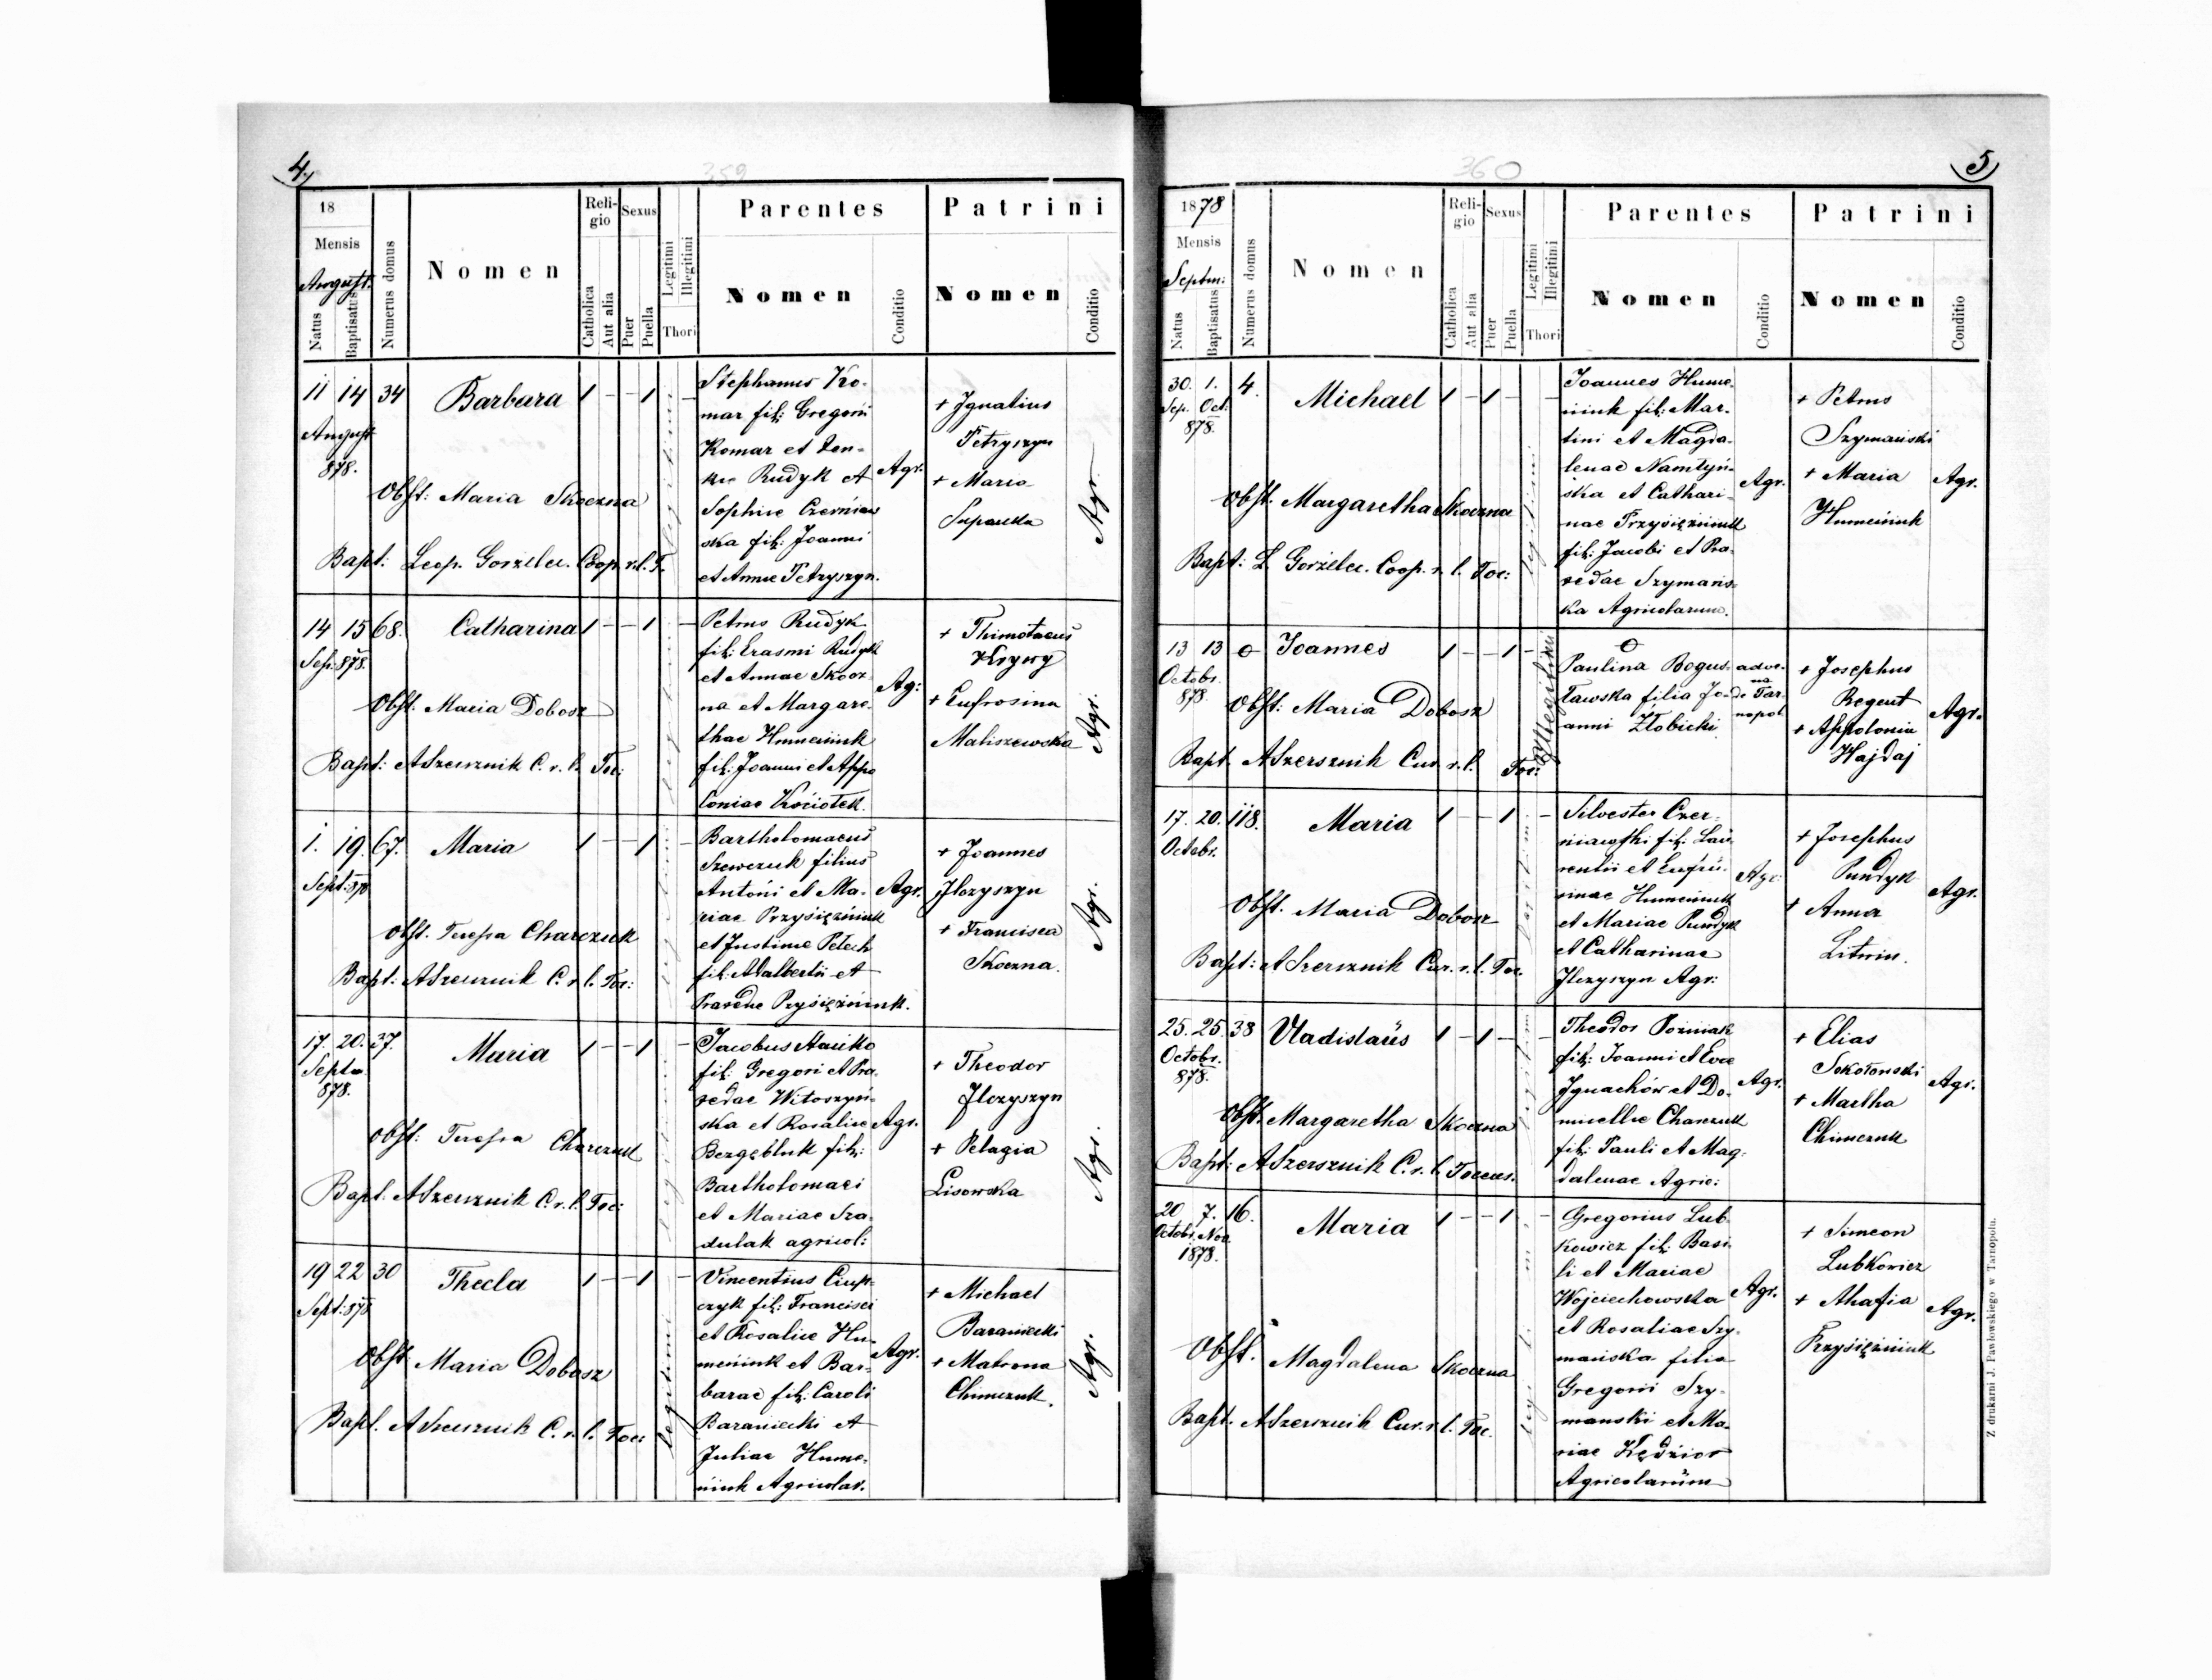 4.
359
18
Mensis
August.
Natus
Baptisatus
Numerus domus
Nomen
Religio
Catholica
Aut alia
Sexus
Puer
Puella
Legitimi
Illegitimi
Thori
Parentes
Nomen
Conditio
Patrini
Nomen
Conditio
11 14 34 Barbara 1 - - 1 -
August
878.
Obst: Maria Skoczna
Bapt: Leop. Gorzelec. Coop. r. l. T.
legitimi
Stephanus Ko-
mar fil: Gregorii
Komar et
Rudyk et
Sophiae Czerniaw
ska fil: Joanni
et Annae Petryszyn.
Agr.
+ Ignatius
Petryszyn
+ Maria
Agr.
14 15 68. Catharina 1 - - 1 -
Sep: 878.
Obst. Maria Dobosz
Bapt: A Szersznik C. r. l. Toc:
Petrus Rudyk
fil: Erasmi Rudyk
et Annae Skocz
na et Margare-
thae Humeniuk
fil: Joanni et Appo
loniae Kociołek.
Ag:
+ Thimotaeus
Krywy
+ Eufrosina
Maliszewska
Agr.
1. 19. 67. Maria 1 - - 1 -
Sept: 878
Obst. Teressa Charczuk
Bapt: A Szersznik C. r. l. Toc:
Bartholomaeus
Szewczuk filius
Antoni et Ma-
riae Przysiężniuk
et Justinae Pełech
fil: Adalbertii et
Praxedae Przysiężniuk.
Agr.
+ Joannes
Ilczyszyn
+ Francisca
Skoczna.
Agr.
17. 20. 37. Maria 1 - - 1 -
Septm
878.
Obst: Teressa Charczuk
Bapt. A Szersznik C. r. l. Toc:
Jacobus
fil: Gregori et Pra-
xedae Witoszyń-
ska et Rosaliae
fil:
Bartholomaei
et Mariae Sza-
dulak agricol:
Agr.
+ Theodor
Ilczyszyn
+ Pelagia
Lisowska
Agr.
19 22 30 Thecla 1 - - 1 -
Sept: 878
Obst: Maria Dobosz
Bapt. A Szersznik C. r. l. Toc:
legitimi
Vincentius Ciup-
czyk fil: Francisci
et Rosaliae Hu-
meniuk et Bar-
barae fil: Caroli
Baraniecki et
Juliae Hume-
niuk Agricolar.
Agr.
+ Michael
Baraniecki
+ Matrona
Chimczuk.
Agr.
5
360
1878
Mensis
Septm:
Natus
Baptisatus
Numerus domus
Nomen
Religio
Catholica
Aut alia
Sexus
Puer
Puella
Legitimi
Illegitimi
Thori
Parentes
Nomen
Conditio
Patrini
Nomen
Conditio
30. 1. 4. Michael 1 - 1 - -
Sep. Oct:
878.
Obst. Margaretha Skoczna
Bapt: L. Gorzelec. Coop. r. l. Toc:
legitimi
Joannes Hume-
niuk fil: Mar-
tini et Magda-
lenae Namtyń-
ska et Cathari-
nae Przysiężniuk
fil: Jacobi et Pra-
xedae Szymańs-
ka Agricolarum.
Agr.
+ Petrus
Szymański
+ Maria
Humeniuk
Agr.
13 13 0 Joannes 1 - - 1 -
Octobr.
878.
Obst: Maria Dobosz
Bapt. A Szersznik Cur. r. l. Toc:
Illegitimi
0
Paulina Bogus-
ławska filia Jo-
anni Złobicki
adve-
na
de Tar-
nopol
+ Josephus
Regent
+ Appolonia
Hajdaj
Agr.
17. 20. 118. Maria 1 - - 1 -
Octobr.
Obst. Maria Dobosz
Bapt: A Szersznik Cur. r. l. Toc.
Silvester Czer-
niawski fil: Lau-
rentii et Eufro-
sinae Humeniuk
et Mariae Pundyk
et Catharinae
Ilczyszyn Agr:
Agr:
+ Josephus
Pundyk
+ Anna
Litwin.
Agr.
25. 25. 38 Vladislaus 1 - 1 - -
Octobr.
878.
Obst. Margaretha Skoczna
Bapt: A Szersznik C. r. l. Toceus.
Theodor Pożniak
fil: Joanni et Evae
Ignachów et Do-
micellae Charczuk
fil: Pauli et Mag-
dalenae Agric:
Agr.
+ Elias
Sokołowski
+ Martha
Chimczuk
Agr.
20 7. 16. Maria 1 - - 1 -
Octobr. Nov.
1878.
Obst. Magdalena Skoczna
Bapt. A Szersznik Cur. r. l. Toc.
Gregorius Lub-
kowicz fil: Basi-
li et Mariae
Wojciechowska
et Rosaliae Szy-
mańska filia
Gregorii Szy-
manski et Ma-
riae Kędzior
Agricolarum
Agr.
+ Simeon
Lubkowicz
+ Ahafia
Przysiężniuk
Agr.
Z drukarni J. Pawłowskiego w Tarnopolu.